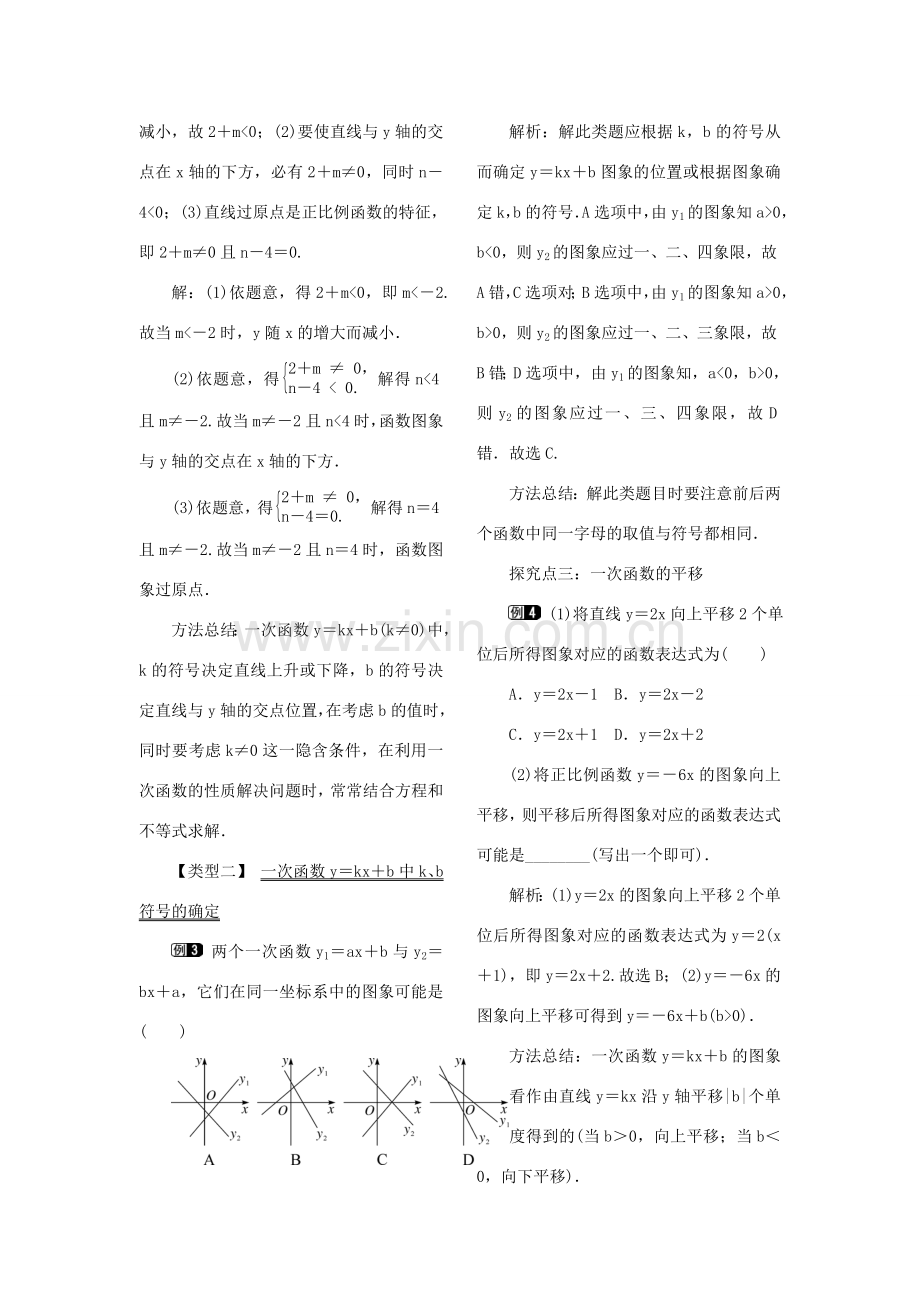 减小，故2＋m<0；(2)要使直线与y轴的交
点在x轴的下方，必有2＋m≠0，同时n－
4<0；(3)直线过原点是正比例函数的特征，
即2＋m≠0且n－4＝0.
解：(1)依题意，得2＋m<0，即m<－2.
故当m<－2时，y随x的增大而减小．
(2)依题意，得{2＋m ≠ 0，
n－4 < 0. 解得n<4
且m≠－2.故当m≠－2且n<4时，函数图象
与y轴的交点在x轴的下方．
(3)依题意，得{2＋m ≠ 0，
n－4＝0. 解得n＝4
且m≠－2.故当m≠－2且n＝4时，函数图
象过原点．
方法总结：一次函数y＝kx＋b(k≠0)中，
k的符号决定直线上升或下降，b的符号决
定直线与y轴的交点位置，在考虑b的值时，
同时要考虑k≠0这一隐含条件，在利用一
次函数的性质解决问题时，常常结合方程和
不等式求解．
【类型二】 一次函数y＝kx＋b中k、b
符号的确定
例3 两个一次函数y₁＝ax＋b与y₂＝
bx＋a，它们在同一坐标系中的图象可能是
(　　)
y O y₁ x y₂ A
y y₁ O x y₂ B
y y₁ O x y₂ C
y O x y₁ y₂ D
解析：解此类题应根据k，b的符号从
而确定y＝kx＋b图象的位置或根据图象确
定k，b的符号.A选项中，由y₁的图象知a>0，
b<0，则y₂的图象应过一、二、四象限，故
A错，C选项对；B选项中，由y₁的图象知a>0，
b>0，则y₂的图象应过一、二、三象限，故
B错；D选项中，由y₁的图象知，a<0，b>0，
则y₂的图象应过一、三、四象限，故D
错．故选C.
方法总结：解此类题目时要注意前后两
个函数中同一字母的取值与符号都相同．
探究点三：一次函数的平移
例4 (1)将直线y＝2x向上平移2个单
位后所得图象对应的函数表达式为(　　)
A．y＝2x－1　B．y＝2x－2
C．y＝2x＋1　D．y＝2x＋2
(2)将正比例函数y＝－6x的图象向上
平移，则平移后所得图象对应的函数表达式
可能是________(写出一个即可)．
解析：(1)y＝2x的图象向上平移2个单
位后所得图象对应的函数表达式为y＝2(x
＋1)，即y＝2x＋2.故选B；(2)y＝－6x的
图象向上平移可得到y＝－6x＋b(b>0)．
方法总结：一次函数y＝kx＋b的图象
看作由直线y＝kx沿y轴平移|b|个单
度得到的(当b＞0，向上平移；当b＜
0，向下平移)．
www.zixin.com.cn